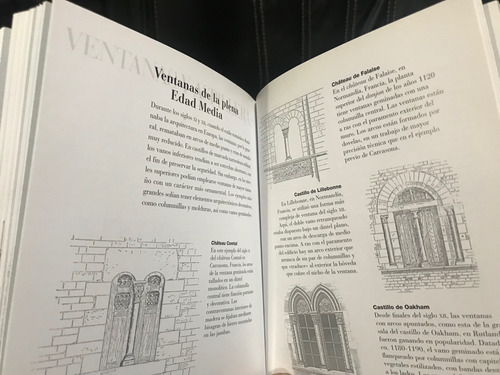 VENTANAS
Ventanas de la plena
Edad Media
Durante los siglos XI y XII, cuando el estilo románico domi-
naba la arquitectura en Europa, las ventanas, por lo gene-
ral, remataban en arcos de medio punto y eran de tamaño
muy reducido. En castillos de marcada
los vanos inferiores tendían a ser estrechas aberturas con
el fin de preservar la seguridad. Sin embargo, en los nive-
les superiores podían emplearse ventanas de mayor tama-
ño con un carácter más ornamental. Los ejemplos más
grandes solían tener elementos arquitectónicos decorativos
como columnillas y molduras, así como vanos geminados
Château Comtal
En este ejemplo del siglo XII
del château Comtal en
Carcasona, Francia, los arcos
de la ventana geminada están
tallados en un dintel
monolítico. La columnilla
central tiene función portante
y decorativa. Las
contraventanas interiores de
madera se fijaban mediante
bisagras de hierro insertadas
en las jambas.
Château de Falaise
En el château de Falaise, en
Normandía, Francia, la planta
superior del donjon de los años 1120
tiene ventanas geminadas con una
columnilla central. Las ventanas están
a ras con el paramento exterior del
muro. Los arcos están formados por
dovelas, en un trabajo de mayor
precisión técnica que en el ejemplo
previo de Carcasona.
Castillo de Lillebonne
En Lillebonne, en Normandía,
Francia, se utilizó una forma más
compleja de ventana del siglo XII.
Aquí, el doble vano retranqueado
estaba dispuesto bajo un dintel plano,
con un arco de descarga de medio
punto encima. A ras con el paramento
del edificio hay un arco exterior que
arranca de un par de columnillas y
que «traduce» al exterior la bóveda
que cubre el nicho de la ventana.
Castillo de Oakham
Desde finales del siglo XII, las ventanas
con arcos apuntados, como esta de la gran
sala del castillo de Oakham, en Rutland,
fueron ganando en popularidad. Datada
ca. 1180-1190, el vano geminado está
flanqueado por columnillas con capiteles
vegetales estilizados, con bandas dentadas
a los lados.